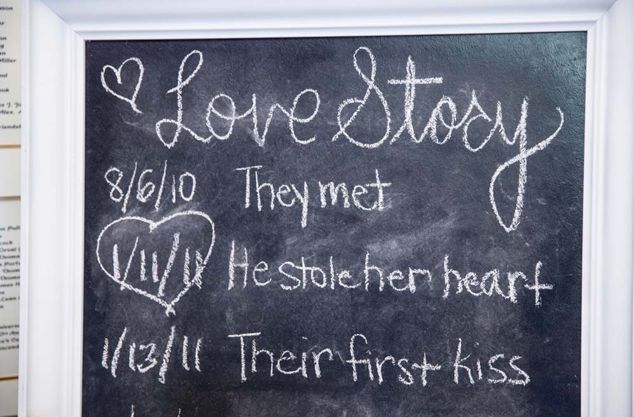 Love Story
8/6/10 They met
1/11/11 He stole her heart
1/13/11 Their first kiss